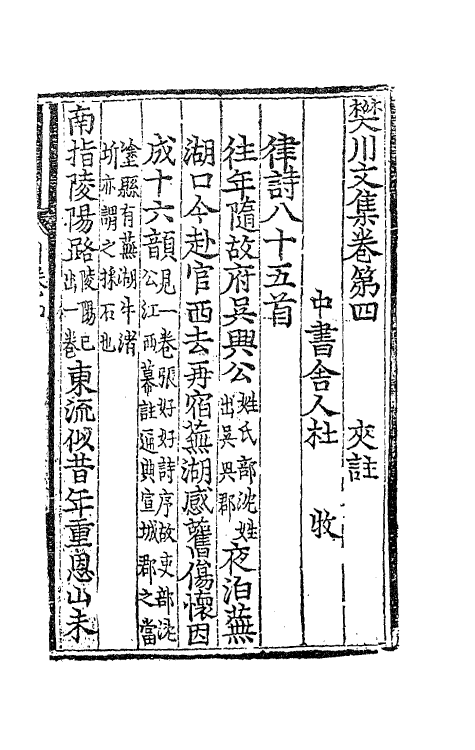 樊川文集卷第四　夾註
中書舍人杜　牧
律詩八十五首
往年隨故府吳興公姓氏部沈姓出吳興郡夜泊蕪
湖口今赴官西去再宿蕪湖感舊傷懷因
成十六韻見一卷張好好詩序故吏部沈公江西幕註通典宣城郡之當
塗縣有蕪湖牛渚圻亦謂之採石也
南指陵陽路陵陽已出一卷東流似昔年重恩山未